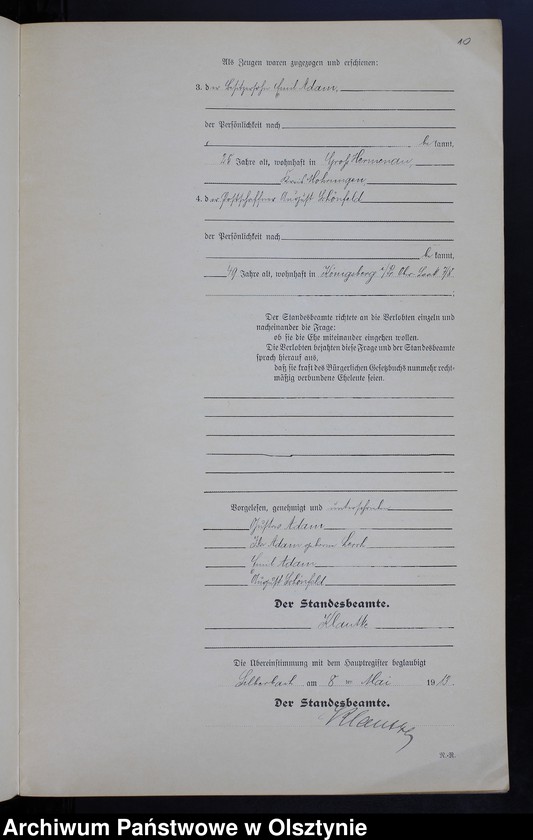 10
Als Zeugen waren zugezogen und erschienen:
3. der Besitzersohn Emil Adam,
der Persönlichkeit nach
be kannt,
Jahre alt, wohnhaft in Groß Hermenau,
Kreis Mohrungen,
4. der Postschaffner August Schönfeld
der Persönlichkeit nach
be kannt,
49 Jahre alt, wohnhaft in Königsberg i/Pr.
Der Standesbeamte richtete an die Verlobten einzeln und
nacheinander die Frage:
ob sie die Ehe miteinander eingehen wollen.
Die Verlobten bejahten diese Frage und der Standesbeamte
sprach hierauf aus,
daß sie kraft des Bürgerlichen Gesetzbuchs nunmehr recht-
mäßig verbundene Eheleute seien.
Vorgelesen, genehmigt und unterschrieben
Gustav Adam
Adam geborene
Emil Adam
August Schönfeld
Der Standesbeamte.
Klautke
Die Übereinstimmung mit dem Hauptregister beglaubigt
Silberbach am 8 ten Mai 1913.
Der Standesbeamte.
Klautke
R.-R.
Archiwum Państwowe w Olsztynie